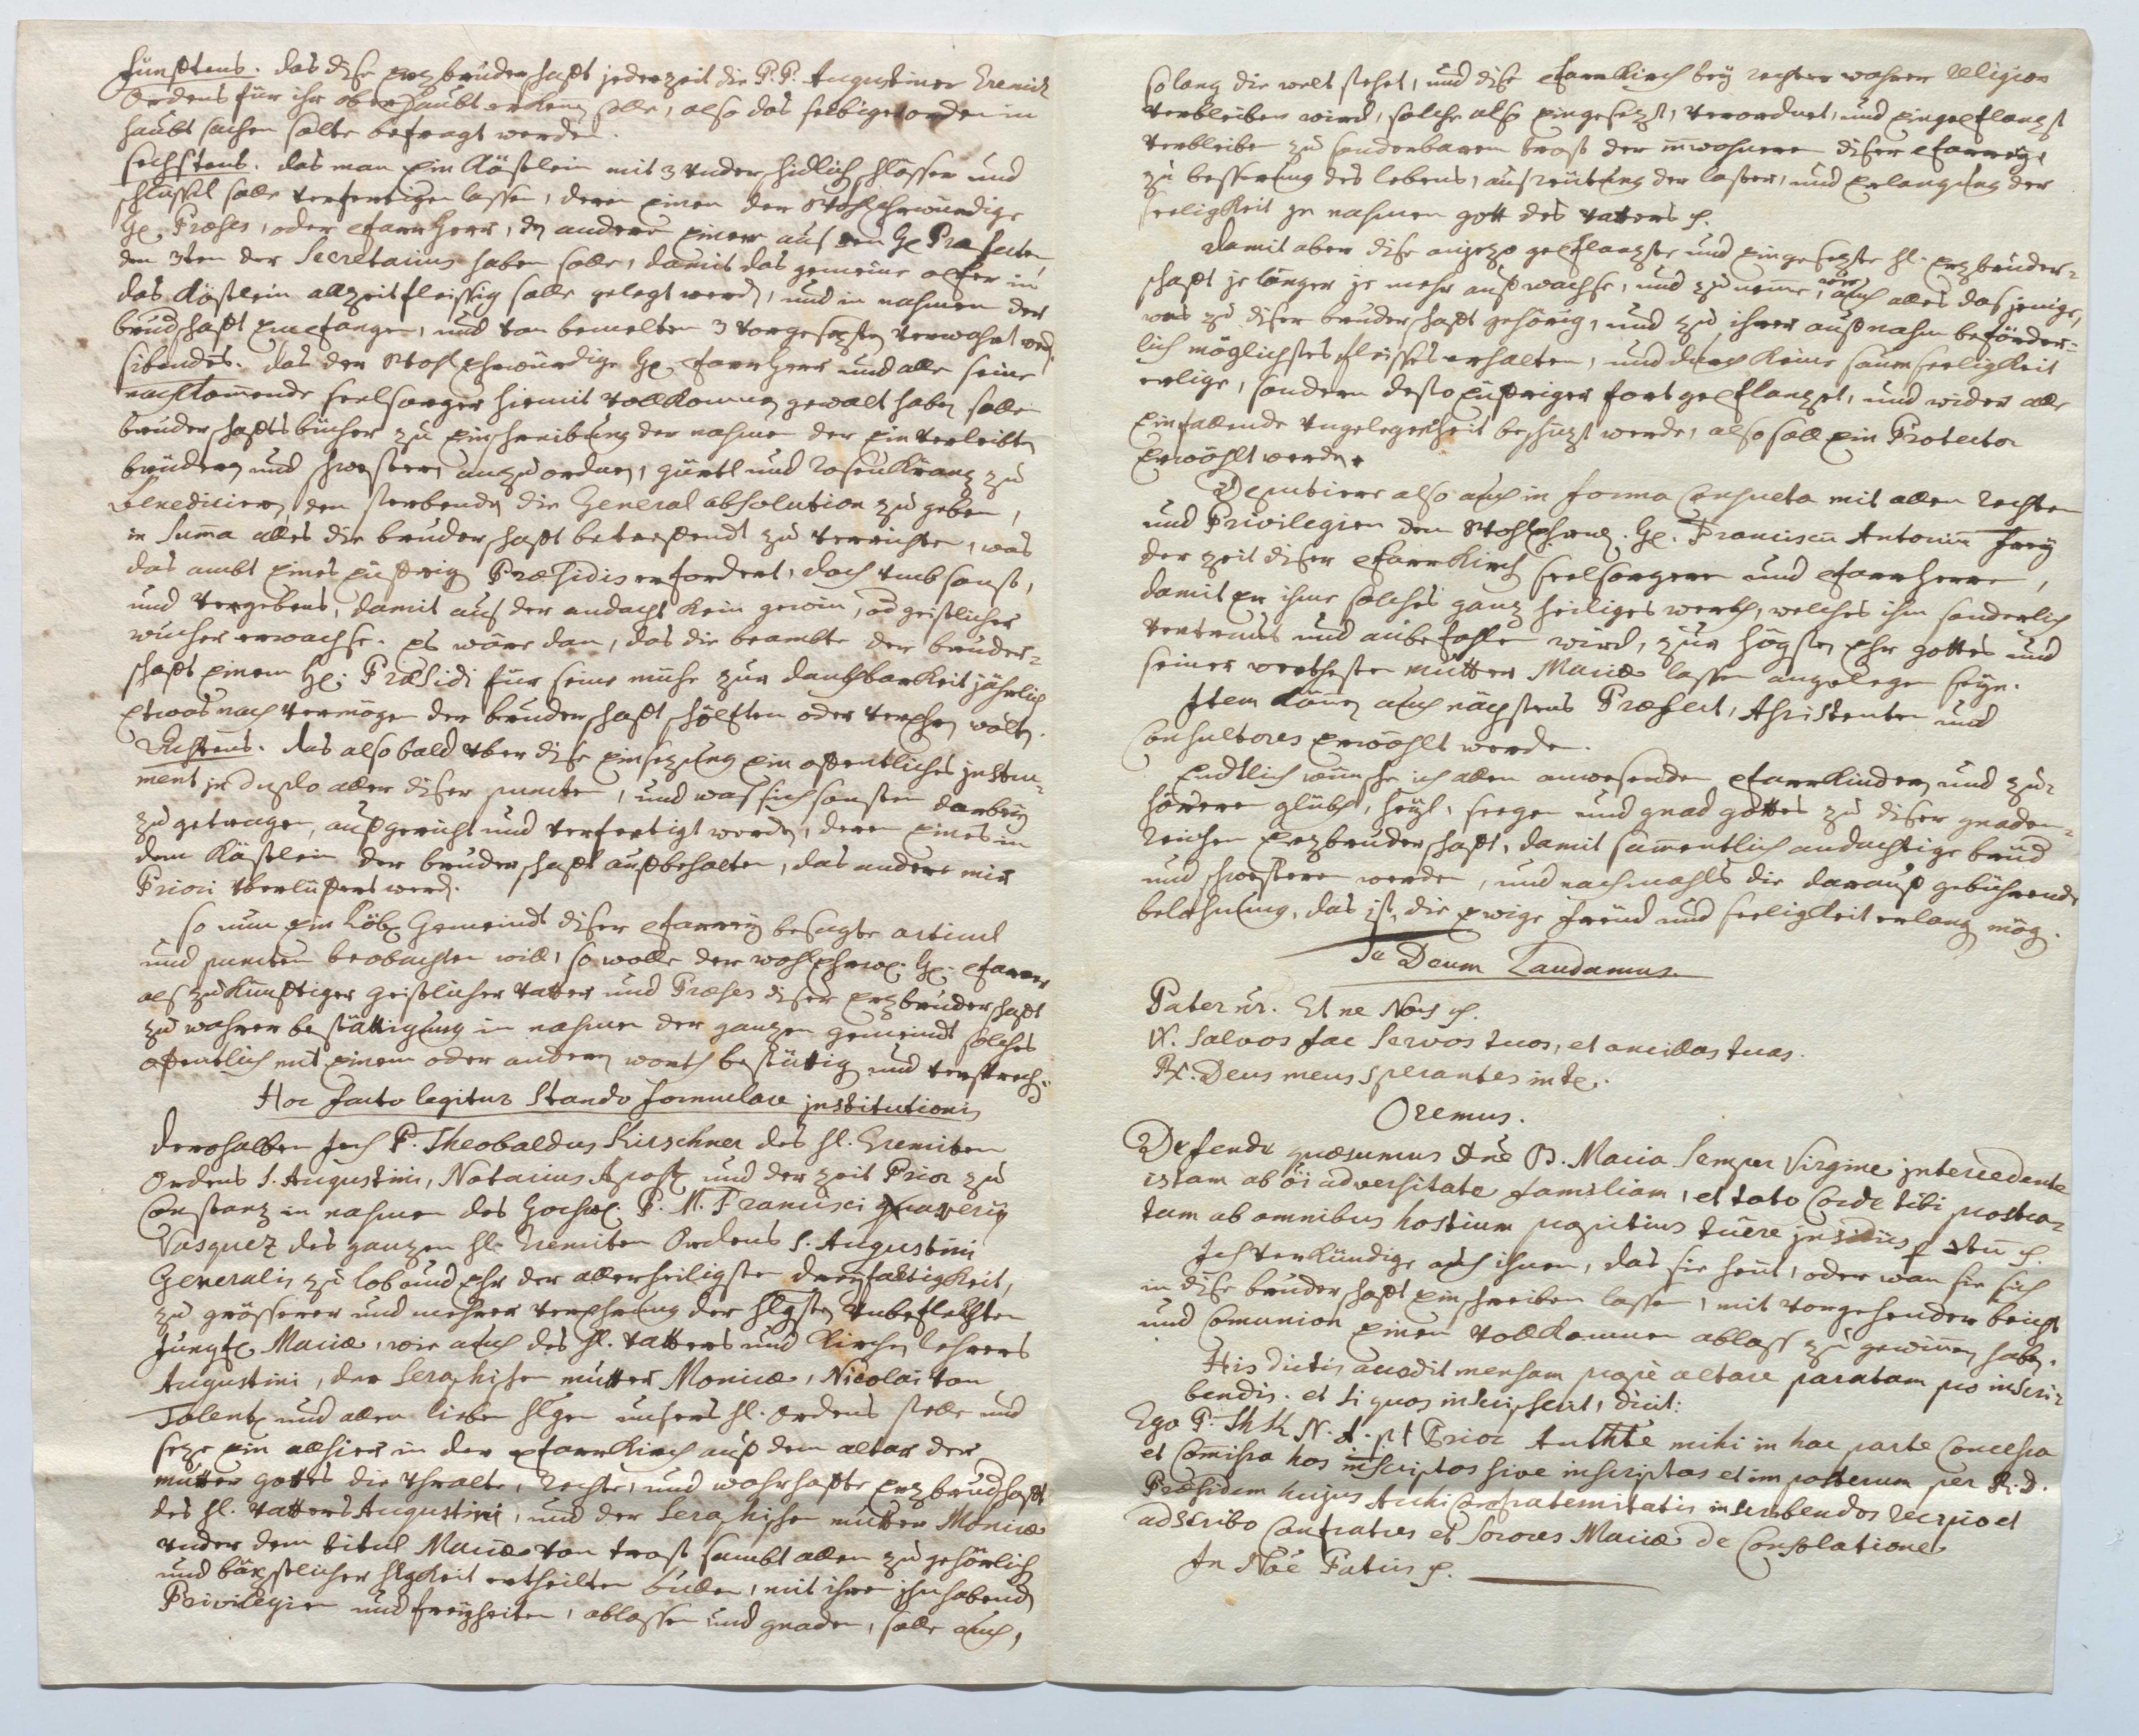 Fünftens. das dise Erzbruderschafft jederzeit die P.P. Augustiner Eremit.
Ordens für ihr oberhaubt erkenen solle, also das selbiger orden in
haubt sachen solte befragt werden.
Sechstens. das man ein Kästlein mit 3 underschidlich schlösser und
schlüssel solle verfertigen lassen, deren einen der Wohlehrwürdige
H. Præses, oder Pfarrherr, den andern einer aus den H. Præfecten
den 3ten der Secretarius haben solle, damit das gemeine opfer in
das Kästlein allzeit fleissig solle gelegt werden, und in nahmen der
brudschafft empfangen, und von bemelten 3 vorgesezten verwahrt werd.
Sibendes. das der Wohl Ehrwürdige H. Pfarrherr und alle seine
nachkommende seelsorger hiemit vollkommen gewalt haben solle
bruderschaffts bücher zu einschreibung der nahmen der einverleibten
brüdern und schwestern anzuordnen, gürtl und rosenkränz zu
Benedicieren, den sterbenden die General absolution zu geben,
in Suma alles die bruderschafft betreffendt zu verrichten, was
das ambt eines eyffrigen Præsidis erfordert, doch umb sonst,
und vergebens, damit aus der andacht kein gewin, od geistlicher
wucher erwachse. es wäre dan, das die beambte der bruder=
schafft einem H. Præsidi für seine mühe zur danckbarkeit jährlich
etwas nach vermögen der bruderschafft schöpfen oder verehren wolten.
Achtens. das alsobald über dise einsezung ein offentliches instru=
ment in duplo aller diser puncten, und was sich sonsten darbey
zu getragen, auffgericht und verfertigt werden, deren eines in
dem Kästlein der bruderschafft auffbehalten, das andere mir
Priori überlüffert werd.
So nun ein löbl. Gemeindt diser Pfarrey besagte articul
und puncten beobachten will, so wolle der wohlehrw. H. Pfarrer
als zukünfftiger geistlicher vatter und Præses diser Erzbruderschafft
zu wahrer bestättigung in nahmen der ganzen gemeindt solches
offentlich mit einem oder andern worth bestättigen und versprechen.
Hoc facto legitur stando formulare institutionis
Derohalben Ich P. Theobaldus Kirschner des hl. Eremiten
Ordens S. Augustini, Notarius Apost. und der zeit Prior zu
Constanz in nahmen des Hochw. P. M. Francisci Xaverii
Vasquez des ganzen hl. Eremiten Ordens S. Augustini
Generalis zu lob und Ehr der allerheiligsten dreyfaltigkeit,
zu grösserer und mehrer verehrung der hlgsten unbeflekhten
Jungf. Mariæ, wie auch des hl. vatters und Kirchen lehrers
Augustini, der Seraphischen mutter Monicæ, Nicolai von
Tolent. und allen lieben hlgen unsers hl. Ordens stelle und
seze ein alhier in der Pfarrkirch auff dem altar der
mutter gottes die uhralte, rechte, und wahrhaffte Erzbrudschafft
des hl. vatters Augustini, und der Seraphischen mutter Monicæ
under dem titul Mariæ von trost sambt allen zu gehörlich
und bäpstlicher hlgkeit ertheilten bullen, mit ihren inhabenden
Privilegien und freyheiten, ablassen und gnaden, solle auch,
so lang die welt stehet, und dise Pfarrkirch bey rechter wahrer religion
verbleiben wird, solche also eingesezt, verordnet, und eingepflanzt
verbleiben zu sonderbarem trost der inwohnern diser Pfarrey,
zu besserung des lebens, ausreutung der laster, und Erlangung der
seeligkeit in nahmen gott des vatters etc.
Damit aber dise anjezo gepflanzte und eingesezte hl. Erzbruder=
schafft je länger je mehr auffwachse, und zuneme, wie auch alles dasjenige,
was zu diser bruderschafft gehörig, und zu ihrer auffnahm beförder=
lich möglichstes fleisses erhalten, und durch keine saumseeligkeit
erlige, sondern desto eyffriger fortgepflanzet, und wider alle
Einfallende ungelegenheit beschüzt werde, also soll ein Protector
Erwöhlt werden.
Deputiere also auch in forma consueta mit allen rechten
und Privilegien den Wohlehrw. H. Franciscum Antonium Frey
der zeit diser Pfarrkirch seelsorgern und Pfarrherrn,
damit er ihme solches ganz heiliges werkh, welches ihm sonderlich
vertraut und anbefohlen wird, zur högsten Ehr gottes und
seiner werthesten mutter Mariæ lassen angelegen seyn.
Item könen auch nächstens Præfect, Assistenten und
Consultores Erwöhlt werden.
Endtlich wünsche ich allen anwesenden Pfarrkindern und zu=
hörern glükh, heyl, seegen und gnad gottes zu diser gnaden=
reichen Erzbruderschafft, damit sammentlich andächtige brüd
und schwestern werden, und nachmahls die darauff gebührende
belohnung, das ist, die Ewige freud und seeligkeit erlangen mög.
Te Deum Laudamus.
Pater nr. Et ne Nos etc.
V. Salvos fac Servos tuos, et ancillas tuas.
R. Deus meus sperantes in te.
Oremus.
Defende quæsumus Dne B. Maria Semper Virgine intercedente
istam ab oi adversitate familiam, et toto Corde tibi prostra=
tam ab omnibus hostium propitius tuere insidiis p xtu etc.
Ich verkündige auch ihnen, das sie heut, oder wan sie sich
in dise bruderschafft einschreiben lassen, mit vorgehender beicht
und Comunion einen vollkommen ablass zu gewinnen haben.
His dictis accedit mensam prope altare paratam pro inscri=
bendis. et si quos inscripserit, dicit:
Ego P. Th K. N. A. p t Prior Authte mihi in hac parte Concessa
et Comissa hos inscriptos sive inscriptas et im posterum per R. D.
Præsidem hujus Archi Confraternitatis inscribendos recipio et
adscribo Confratres et Sorores Mariæ de Consolatione
In Noe Patris etc.